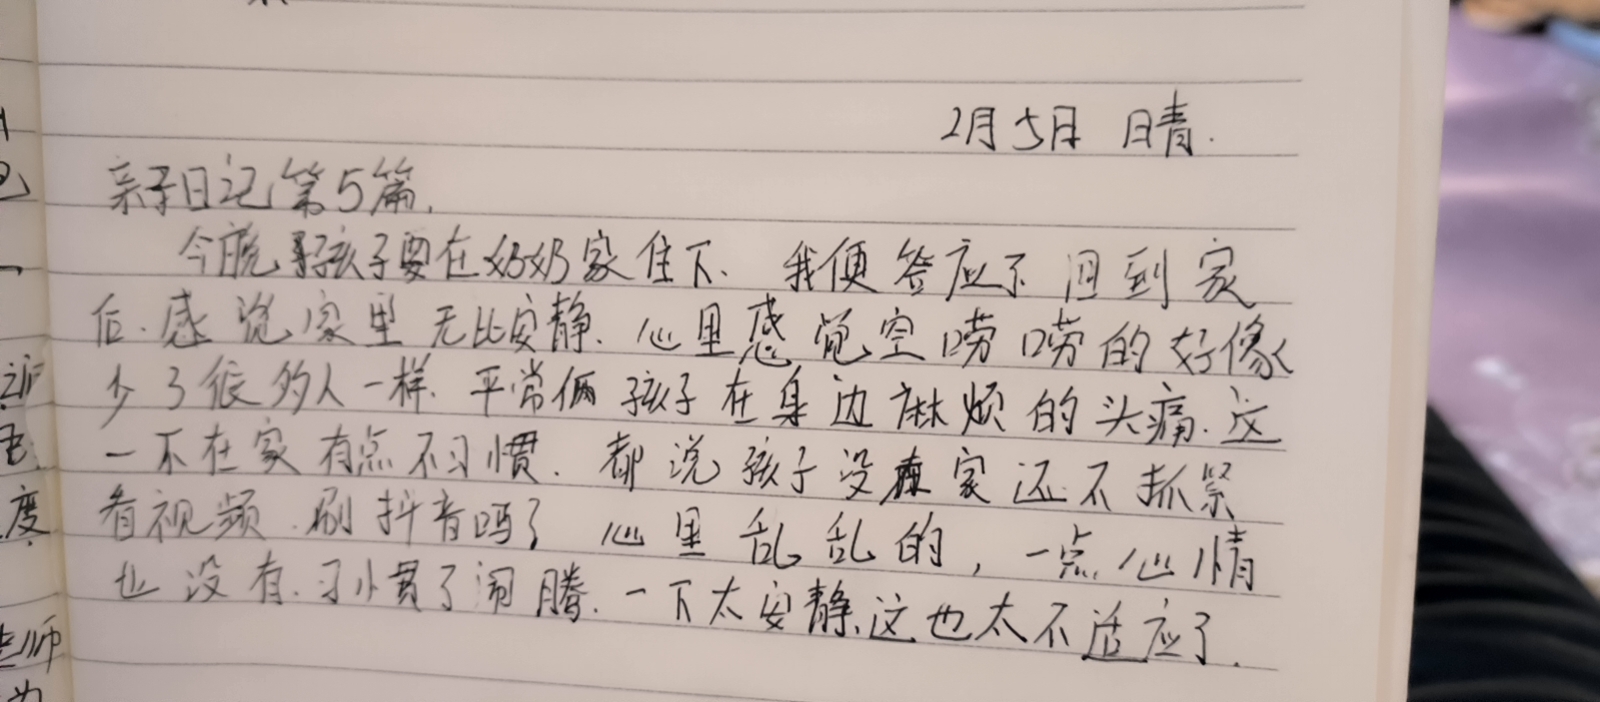 2月5日 晴.
亲子日记第5篇.
今晚孩子要在奶奶家住下、我便答应了回到家
后.感觉家里无比安静.心里感觉空唠唠的好像
少了很多人一样.平常俩孩子在身边麻烦的头痛.这
一不在家有点不习惯.都说孩子没在家还不抓紧
看视频.刷抖音吗?心里乱乱的,一点心情
也没有.习惯了闹腾.一下太安静这也太不适应了.
度
老师
为